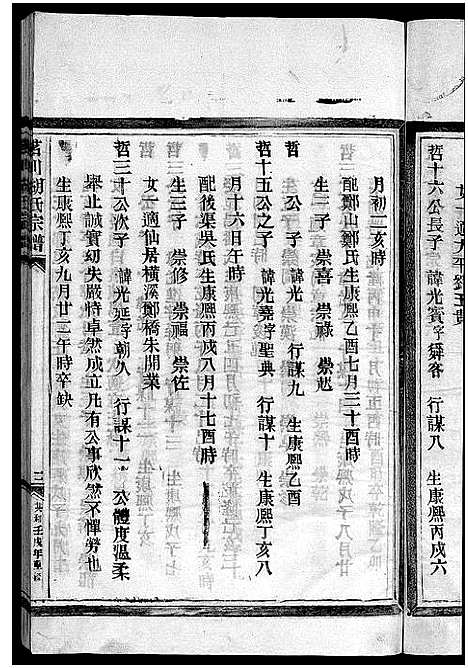 女一適太平鄧玉貴
哲十六公長子 諱光賓字舜客 行謀八 生康熙丙戌六
月初二亥時
配鄭山鄭氏生康熙乙酉七月三十酉時
生三子 崇喜 崇祿 崇起
哲 諱光 行謀九 生康熙乙酉
哲十五公之子 諱光堯字聖典 行謀十 生康熙丁亥八
月十六日午時
配後渠吳氏生康熙丙戌八月十七酉時
生三子 崇修 崇福 崇佐
女一適仙居橫溪鄭橋朱開菜
哲三十公次子 諱光延字朝久 行謀十一 公體度溫柔
舉止誠實幼失嚴恃卓然成立凡有公事欣然不憚勞也
生康熙丁亥九月廿三午時卒缺
茗川胡氏宗譜 三 共和壬戌年重修